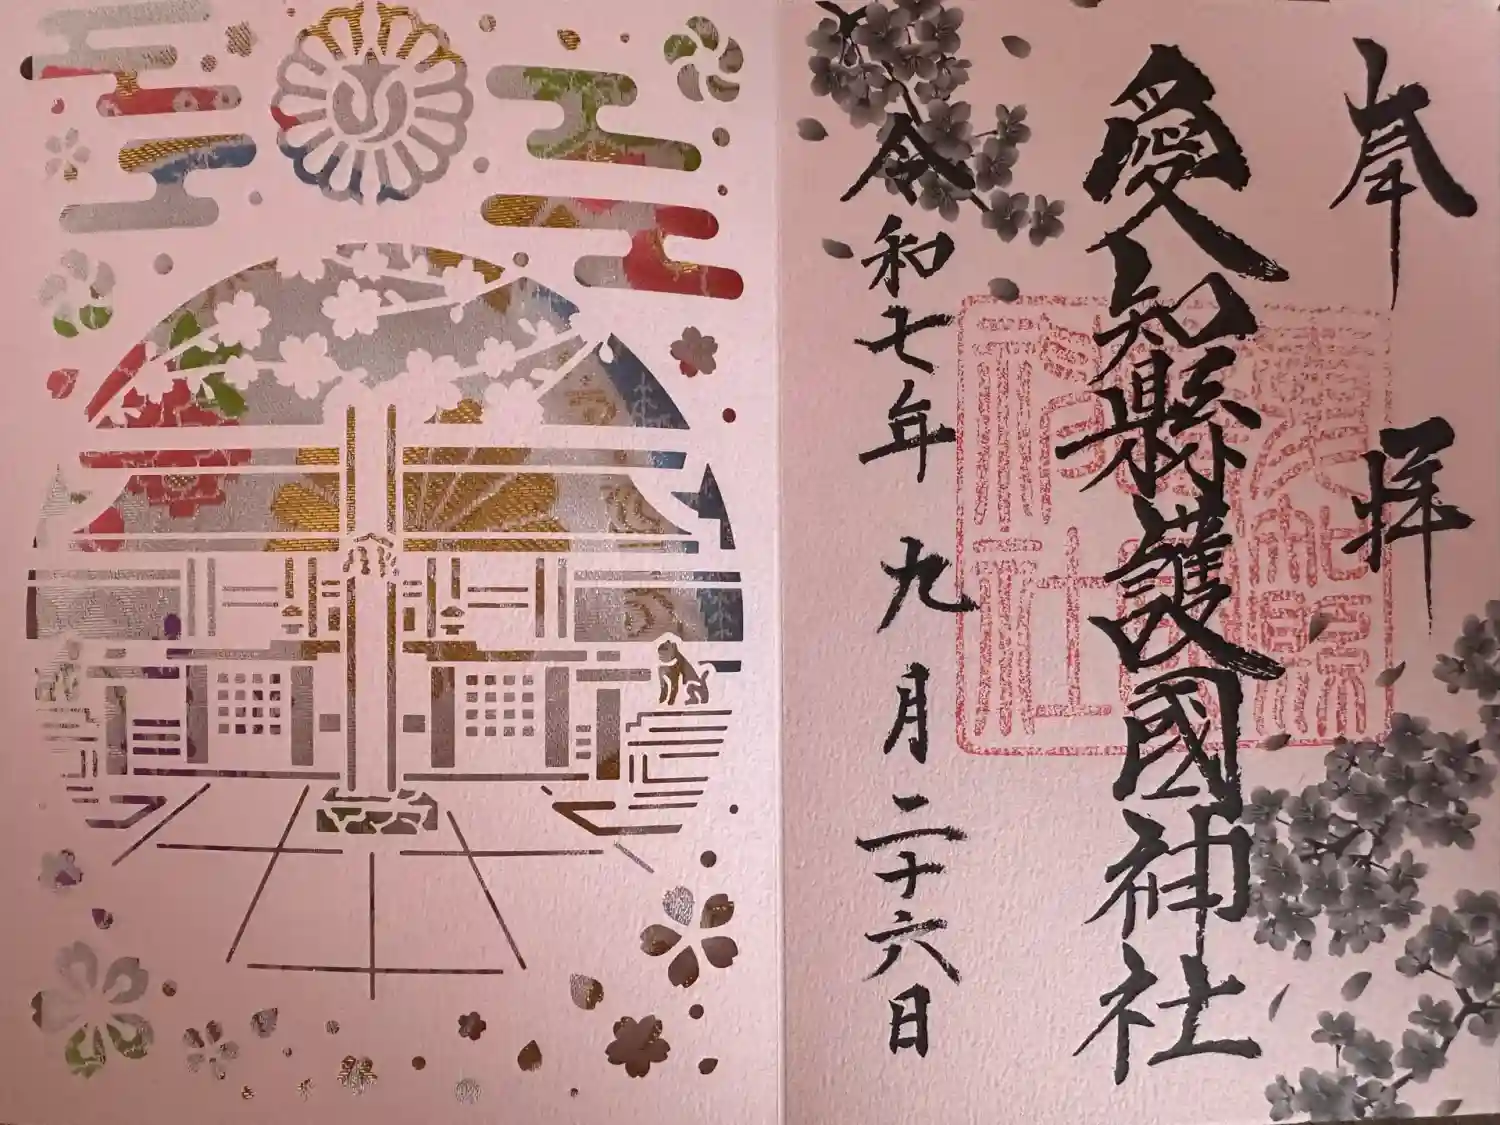 奉拝
愛知縣護國神社
令和七年九月二十六日
愛知縣
護國神社